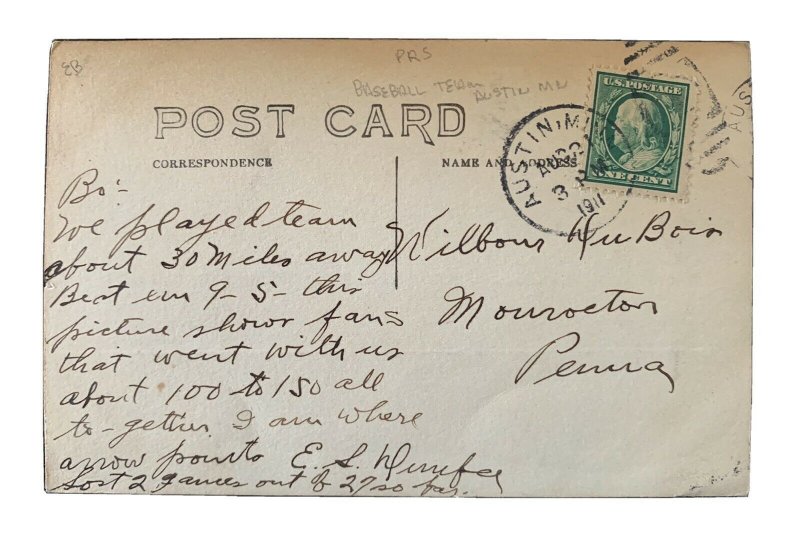 EB
PRS
BASEBALL TEAM
AUSTIN MN
POST CARD
CORRESPONDENCE
NAME AND ADDRESS
U.S. POSTAGE
ONE CENT
AUSTIN, MINN
AUG 21
3 PM
1911
AUS
Bo:-
We played team
about 30 Miles away
Beat em 9-5- this
picture shows fans
that went with us
about 100 to 150 all
to-gether I am where
arrow points E. S.
Lost 2 games out of 27 so far.
Wilbour DuBois
Monroeton
Penna